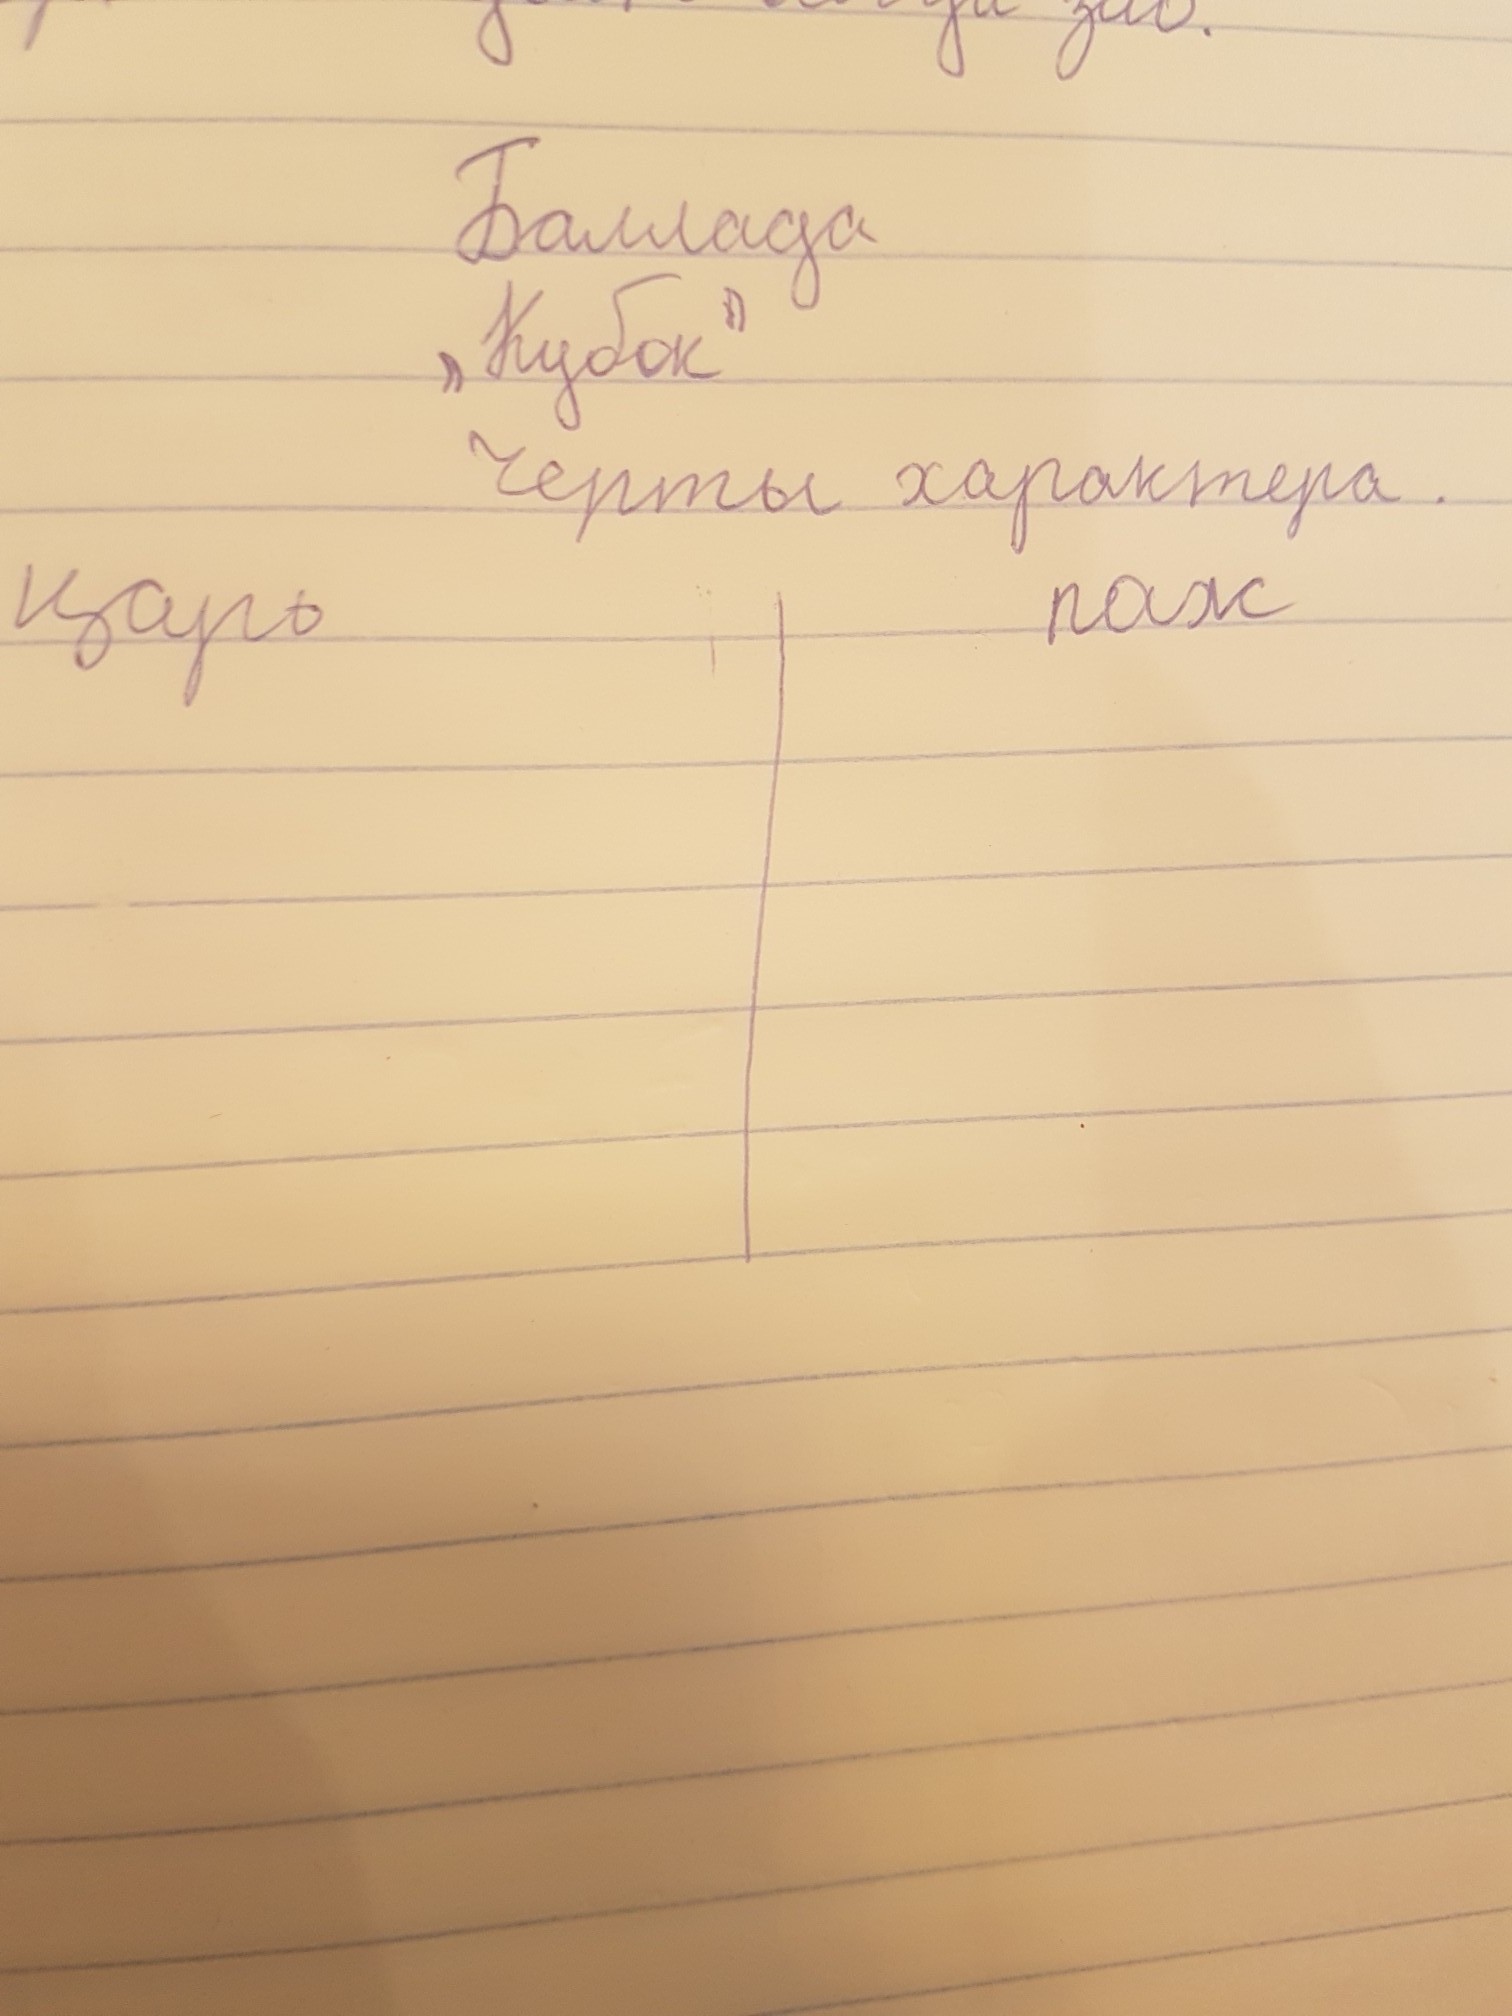 зло.
Баллада
„Кубок"
Черты характера.
царь паж